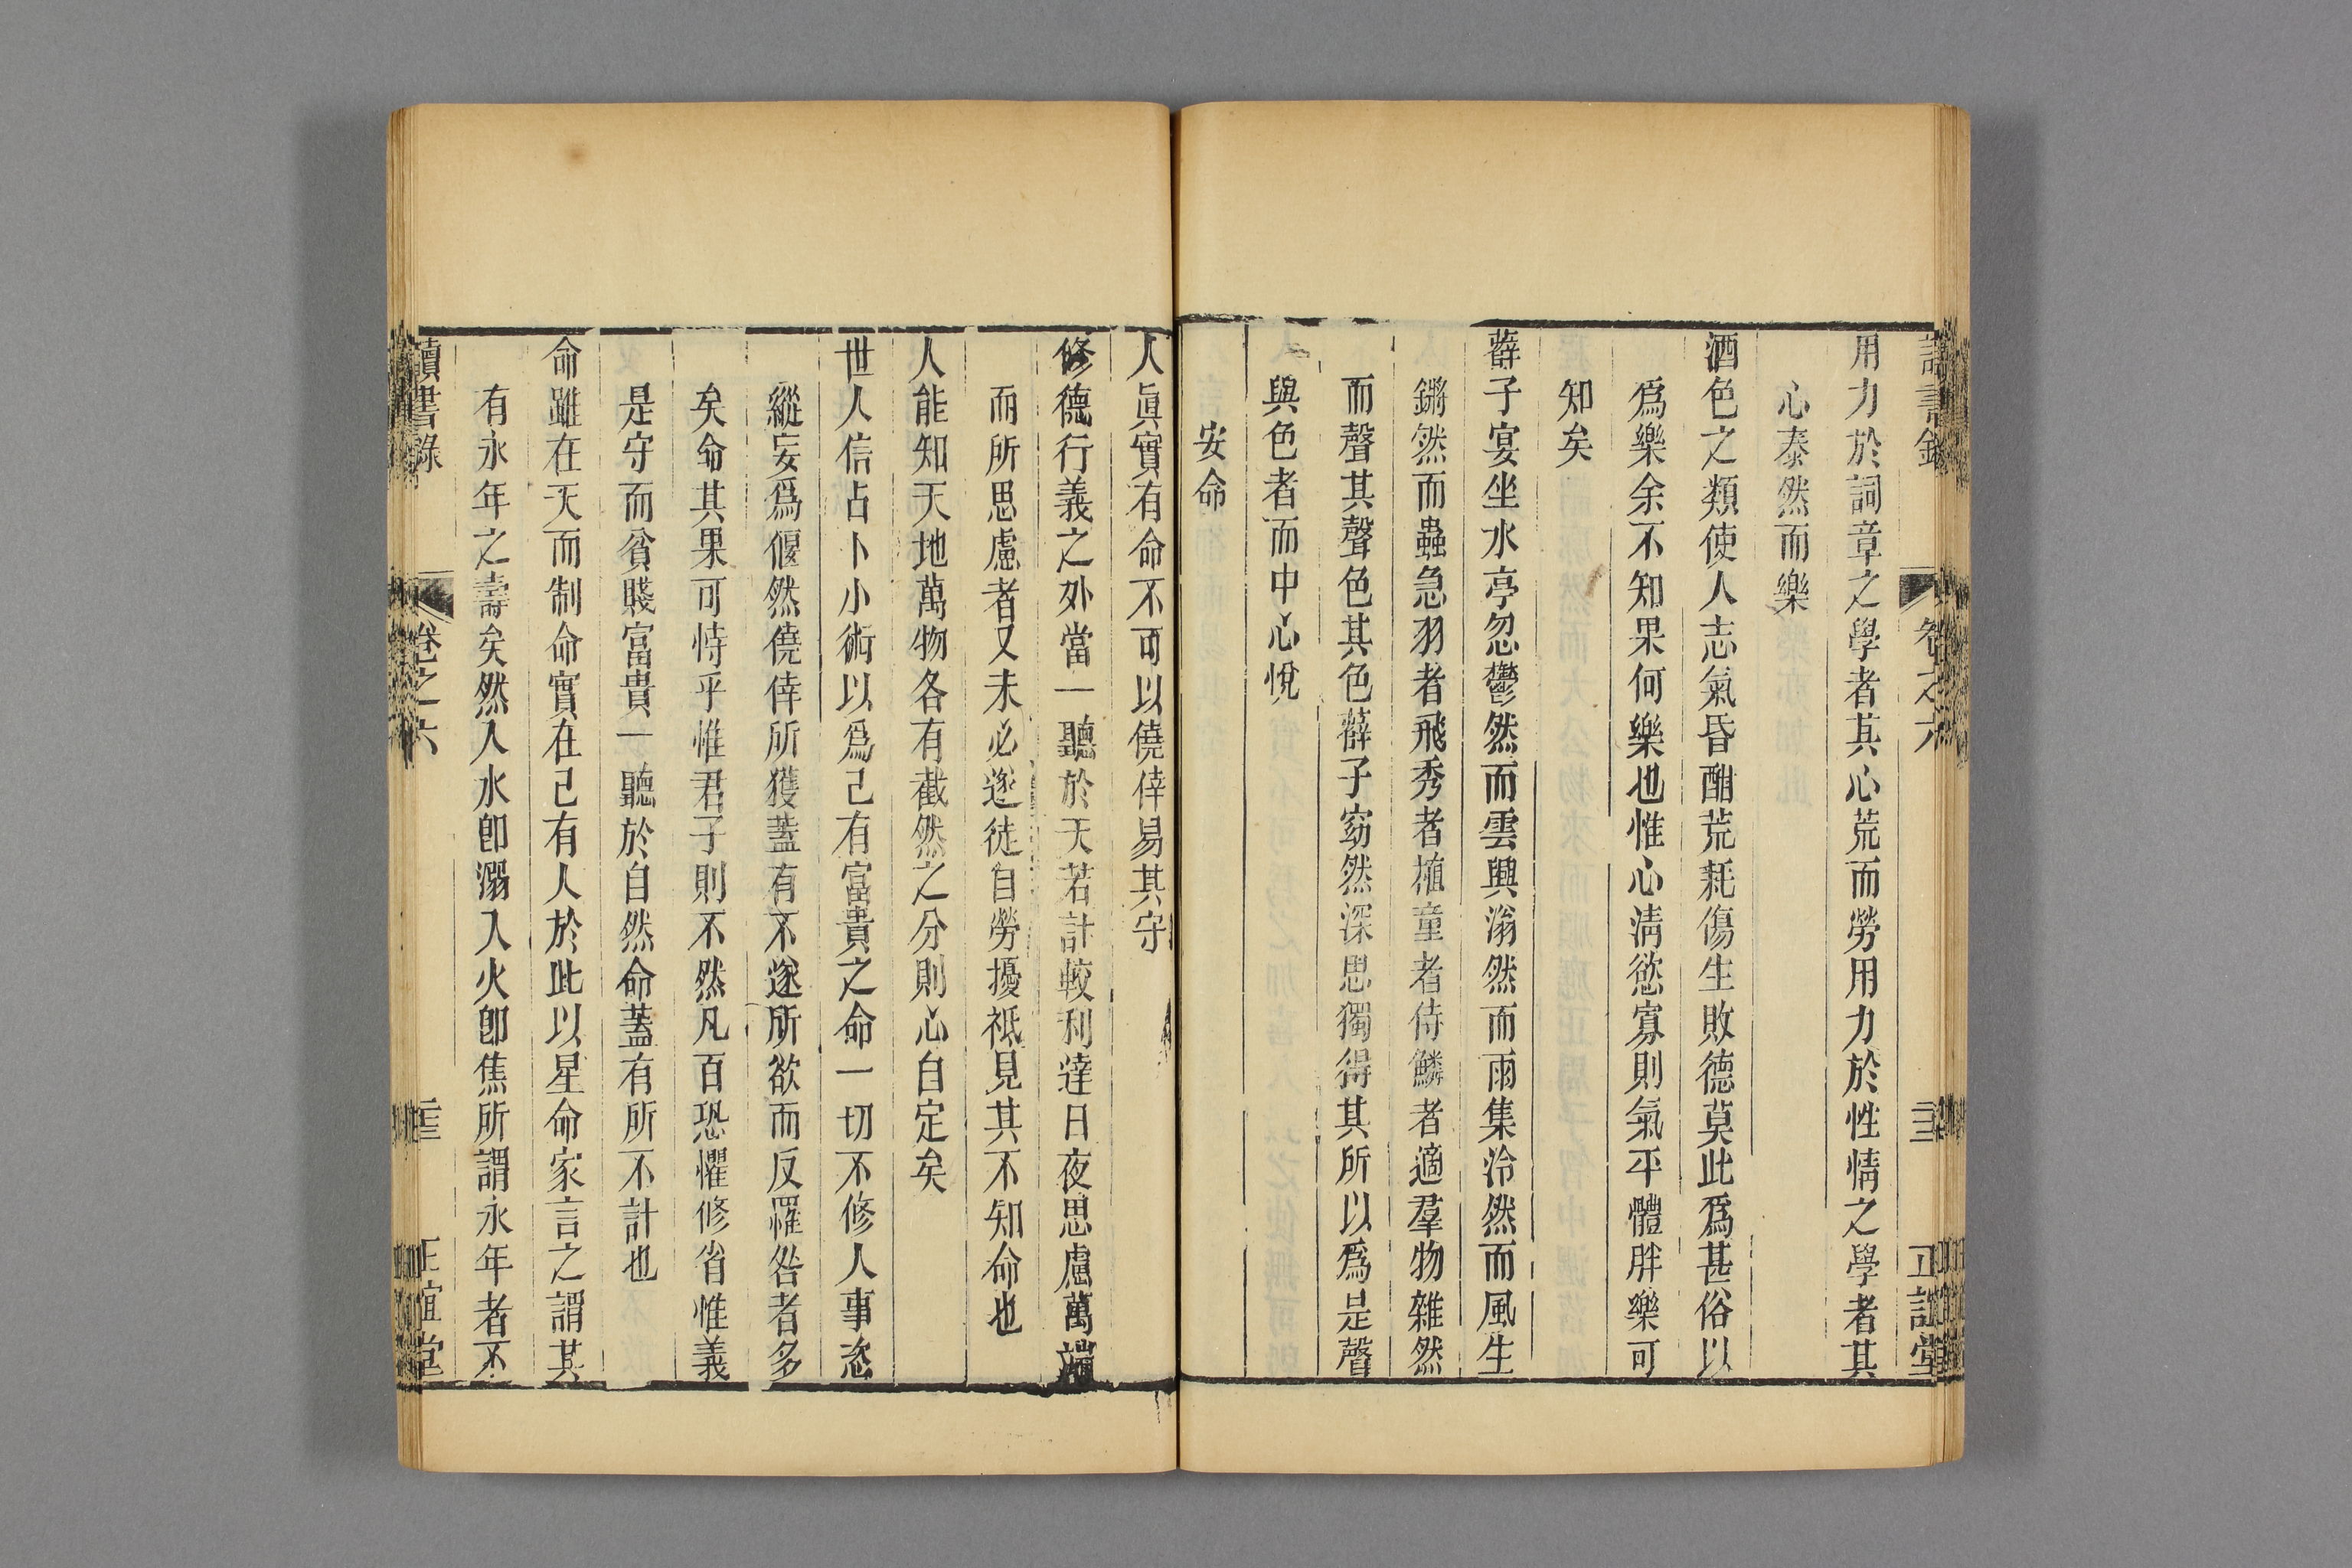 讀書錄 卷之六 正誼堂
用力於詞章之學者其心荒而勞用力於性情之學者其
心泰然而樂
酒色之類使人志氣昏酣荒耗傷生敗德莫此爲甚俗以
爲樂余不知果何樂也惟心淸慾寡則氣平體胖樂可
知矣
薛子宴坐水亭忽鬱然而雲興滃然而雨集泠然而風生
鏘然而蟲急羽者飛秀者植童者侍鱗者適羣物雜然
而聲其聲色其色薛子窈然深思獨得其所以爲是聲
與色者而中心悅
安命
人眞實有命不可以僥倖易其守
修德行義之外當一聽於天若計較利達日夜思慮萬端
而所思慮者又未必遂徒自勞擾祗見其不知命也
人能知天地萬物各有截然之分則心自定矣
世人信占卜小術以爲己有富貴之命一切不修人事恣
縱妄爲偃然僥倖所獲蓋有不遂所欲而反罹咎者多
矣命其果可恃乎惟君子則不然凡百恐懼修省惟義
是守而貧賤富貴一聽於自然命蓋有所不計也
命雖在天而制命實在己有人於此以星命家言之謂其
有永年之壽矣然入水卽溺入火卽焦所謂永年者不
讀書錄 卷之六 正誼堂